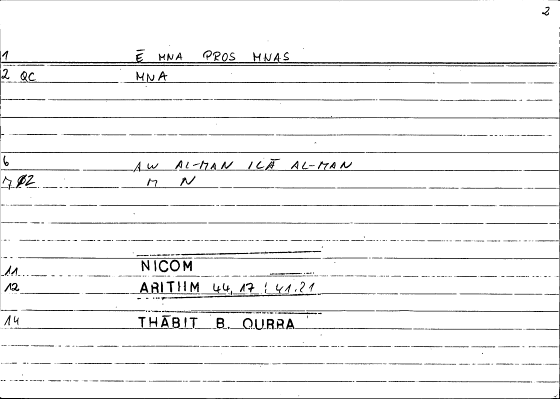 2
1 Ē MNA PROS MNAS
2 QC MNA
6 AW AL-MAN ILĀ AL-MAN
M N
11 NICOM
12 ARITHM 44,17 : 41.21
14 THĀBIT B. QURRA